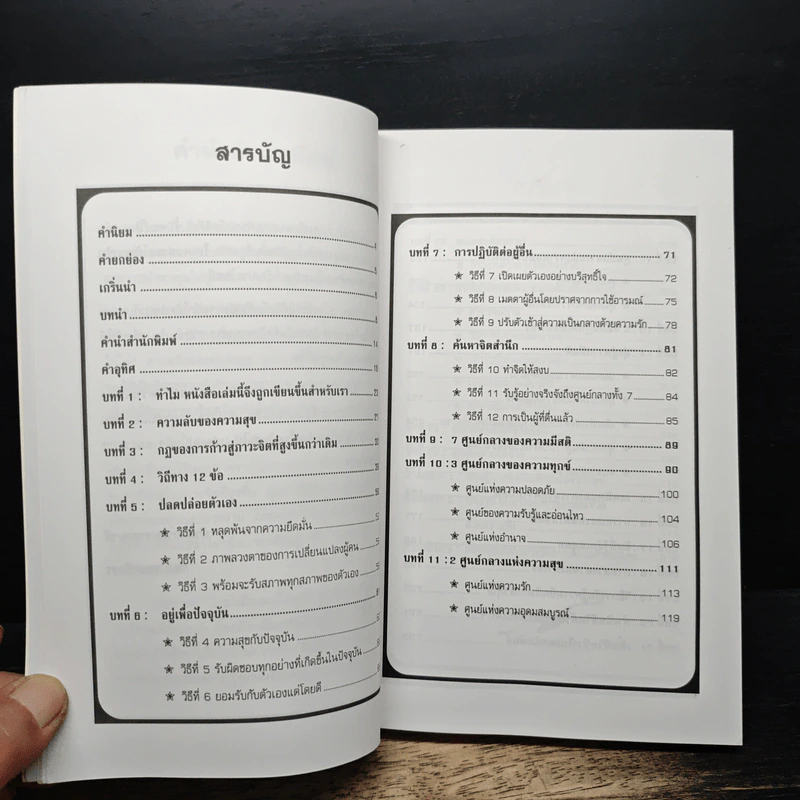 สารบัญ
คำนิยม
คำยกย่อง
เกริ่นนำ
บทนำ
คำนำสำนักพิมพ์
คำอุทิศ
บทที่ 1 : ทำไม หนังสือเล่มนี้จึงถูกเขียนขึ้นสำหรับเรา
บทที่ 2 : ความลับของความสุข
บทที่ 3 : กฎของการก้าวสู่ภาวะจิตที่สูงขึ้นกว่าเดิม
บทที่ 4 : วิถีทาง 12 ข้อ
บทที่ 5 : ปลดปล่อยตัวเอง
★ วิธีที่ 1 หลุดพ้นจากความยึดมั่น
★ วิธีที่ 2 ภาพลวงตาของการเปลี่ยนแปลงผู้คน
★ วิธีที่ 3 พร้อมจะรับสภาพทุกสภาพของตัวเอง
บทที่ 6 : อยู่เพื่อปัจจุบัน
★ วิธีที่ 4 ความสุขกับปัจจุบัน
★ วิธีที่ 5 รับผิดชอบทุกอย่างที่เกิดขึ้นในปัจจุบัน
★ วิธีที่ 6 ยอมรับกับตัวเองแต่โดยดี
บทที่ 7 : การปฏิบัติต่อผู้อื่น 71
★ วิธีที่ 7 เปิดเผยตัวเองอย่างบริสุทธิ์ใจ 72
★ วิธีที่ 8 เมตตาผู้อื่นโดยปราศจากการใช้อารมณ์ 75
★ วิธีที่ 9 ปรับตัวเข้าสู่ความเป็นกลางด้วยความรัก 78
บทที่ 8 : ค้นหาจิตสำนึก 81
★ วิธีที่ 10 ทำจิตให้สงบ 82
★ วิธีที่ 11 รับรู้อย่างจริงจังถึงศูนย์กลางทั้ง 7 84
★ วิธีที่ 12 การเป็นผู้ที่ตื่นแล้ว 85
บทที่ 9 : 7 ศูนย์กลางของความมีสติ 89
บทที่ 10 : 3 ศูนย์กลางของความทุกข์ 90
★ ศูนย์แห่งความปลอดภัย 100
★ ศูนย์ของความรับรู้และอ่อนไหว 104
★ ศูนย์แห่งอำนาจ 106
บทที่ 11 : 2 ศูนย์กลางแห่งความสุข 111
★ ศูนย์แห่งความรัก 113
★ ศูนย์แห่งความอุดมสมบูรณ์ 119